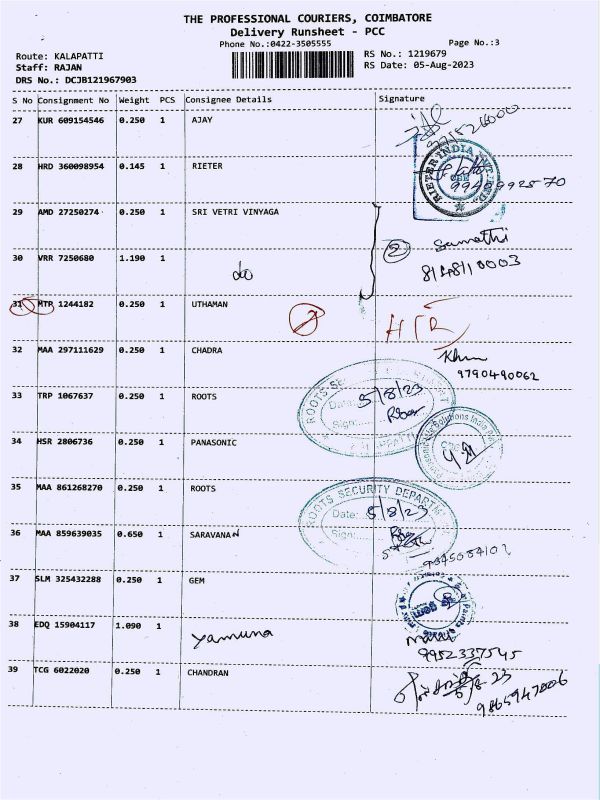 THE PROFESSIONAL COURIERS, COIMBATORE
Delivery Runsheet - PCC
Phone No.:0422-3505555 Page No.:3
Route: KALAPATTI RS No.: 1219679
Staff: RAJAN RS Date: 05-Aug-2023
DRS No.: DCJB121967903
S No Consignment No Weight PCS Consignee Details Signature
27 KUR 609154546 0.250 1 AJAY
28 HRD 360098954 0.145 1 RIETER
RIETER INDIA PVT. LTD.
29 AMD 27250274 0.250 1 SRI VETRI VINYAGA
Sumathi
30 VRR 7250680 1.190 1 do
31 MTR 1244182 0.250 1 UTHAMAN
32 MAA 297111629 0.250 1 CHADRA
9790490062
33 TRP 1067637 0.250 1 ROOTS
Date: 5/8/23
Sign:
34 HSR 2806736 0.250 1 PANASONIC
35 MAA 861268270 0.250 1 ROOTS
ROOTS SECURITY DEPARTM
Date: 5/8/23
Sign:
36 MAA 859639035 0.650 1 SARAVANAN
37 SLM 325432288 0.250 1 GEM
gem
38 EDQ 15904117 1.090 1 Yamuna
9952337545
39 TCG 6022020 0.250 1 CHANDRAN
9865947006